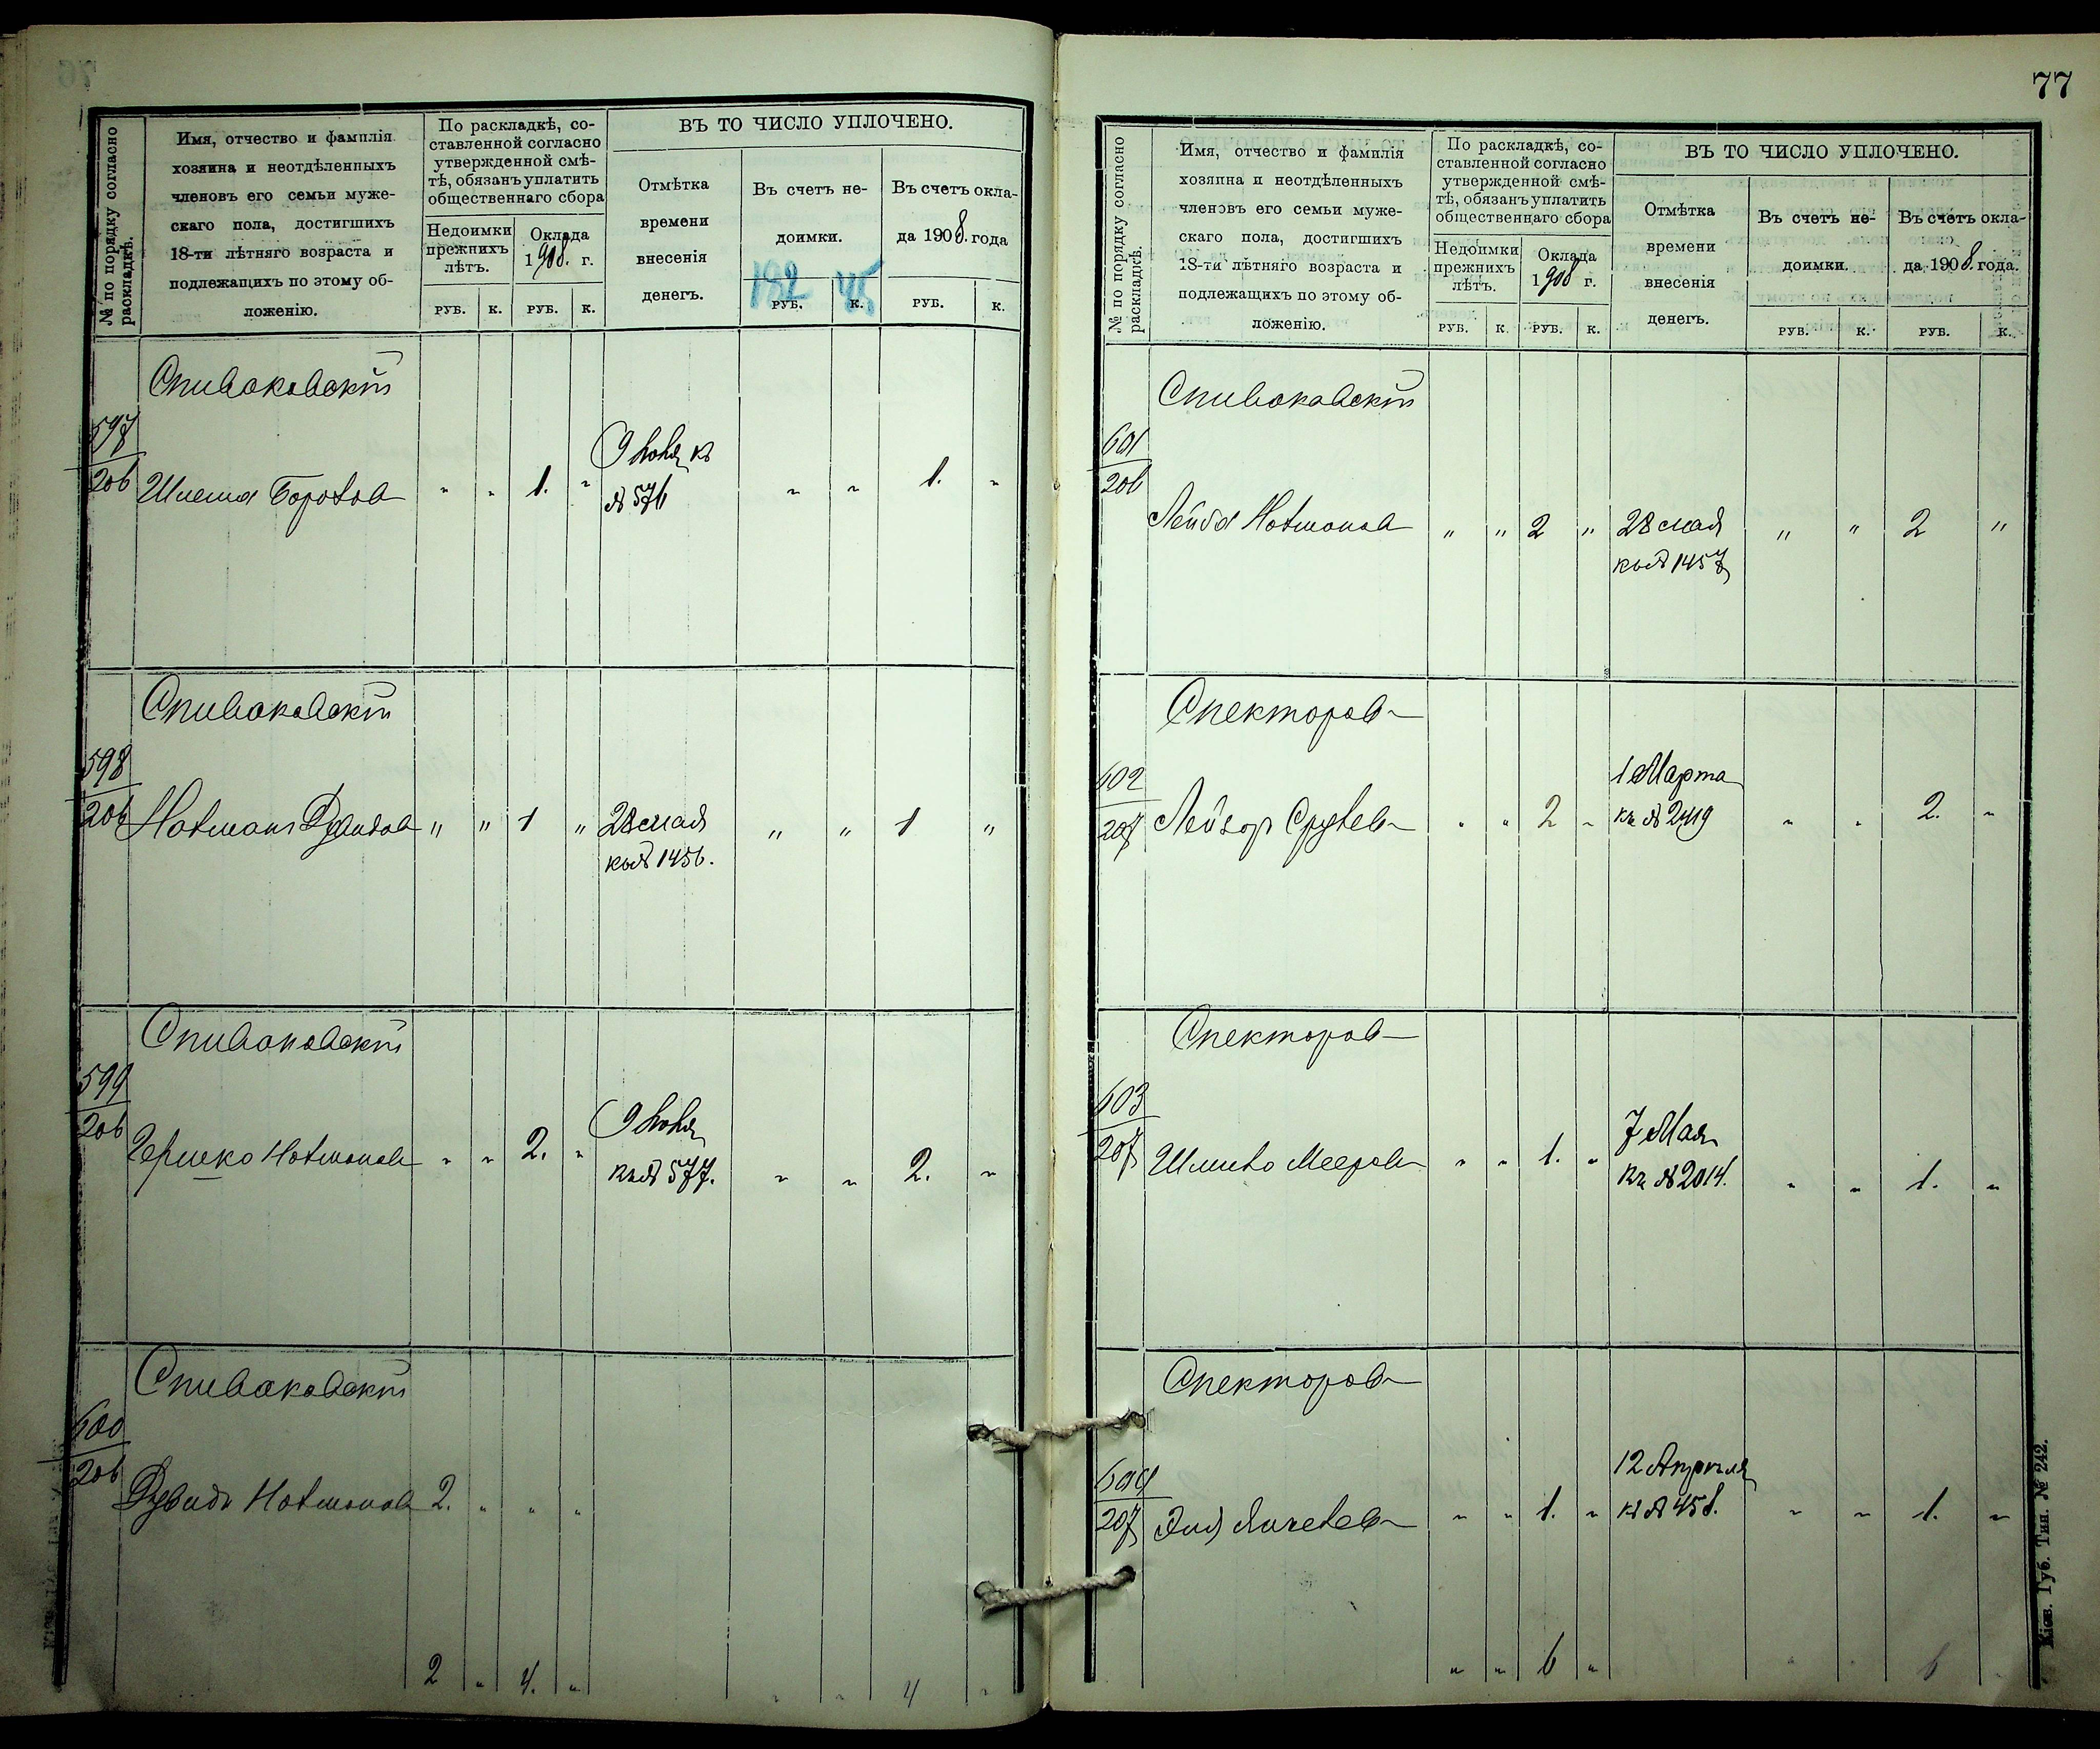 № по порядку согласно раскладкѣ.
Имя, отчество и фамилія
хозяина и неотдѣленныхъ
членовъ его семьи муже-
скаго пола, достигшихъ
18-ти лѣтняго возраста и
подлежащихъ по этому об-
ложенію.
По раскладкѣ, со-
ставленной согласно
утвержденной смѣ-
тѣ, обязанъ уплатить
общественнаго сбора
Недоимки
прежнихъ
лѣтъ.
Оклада
1908. г.
РУБ. К. РУБ. К.
ВЪ ТО ЧИСЛО УПЛОЧЕНО.
Отмѣтка
времени
внесенія
денегъ.
Въ счетъ не-
доимки.
192 45
РУБ. К.
Въ счетъ окла-
да 1908. года
РУБ. К.
Спиваковскій
597
206 Шлема Борохов " " 1. "
9 Июня къ
№ 576
" " 1. "
Спиваковскій
598
206 Нотманъ Дувидов " " 1 "
28 мая
къ № 1456.
" " 1 "
Спиваковскій
599
206 Гершко Нотманов " " 2. "
9 Июня
къ № 577.
" " 2. "
Спиваковскій
600
206 Дувидъ Нотманов 2. " " "
2 " 4. " " " 4 "
77
№ по порядку согласно раскладкѣ.
Имя, отчество и фамилія
хозяина и неотдѣленныхъ
членовъ его семьи муже-
скаго пола, достигшихъ
18-ти лѣтняго возраста и
подлежащихъ по этому об-
ложенію.
По раскладкѣ, со-
ставленной согласно
утвержденной смѣ-
тѣ, обязанъ уплатить
общественнаго сбора
Недоимки
прежнихъ
лѣтъ.
Оклада
1908 г.
РУБ. К. РУБ. К.
ВЪ ТО ЧИСЛО УПЛОЧЕНО.
Отмѣтка
времени
внесенія
денегъ.
Въ счетъ не-
доимки.
РУБ. К.
Въ счетъ окла-
да 1908. года.
РУБ. К.
Спиваковскій
601
206 Лейба Нотманов " " 2 "
28 мая
къ № 1457
" " 2 "
Спекторов
602
207 Лейзор Срулев " " 2 "
1 Марта
къ № 2419
" " 2. "
Спекторов
603
207 Шлиомо Мееров " " 1. "
7 Мая
къ № 2014.
" " 1. "
Спекторов
604
207 " " 1. "
12 Апреля
къ № 458.
" " 1. "
" " 6 " " " 6 "
Кіев. Губ. Тип. № 242.